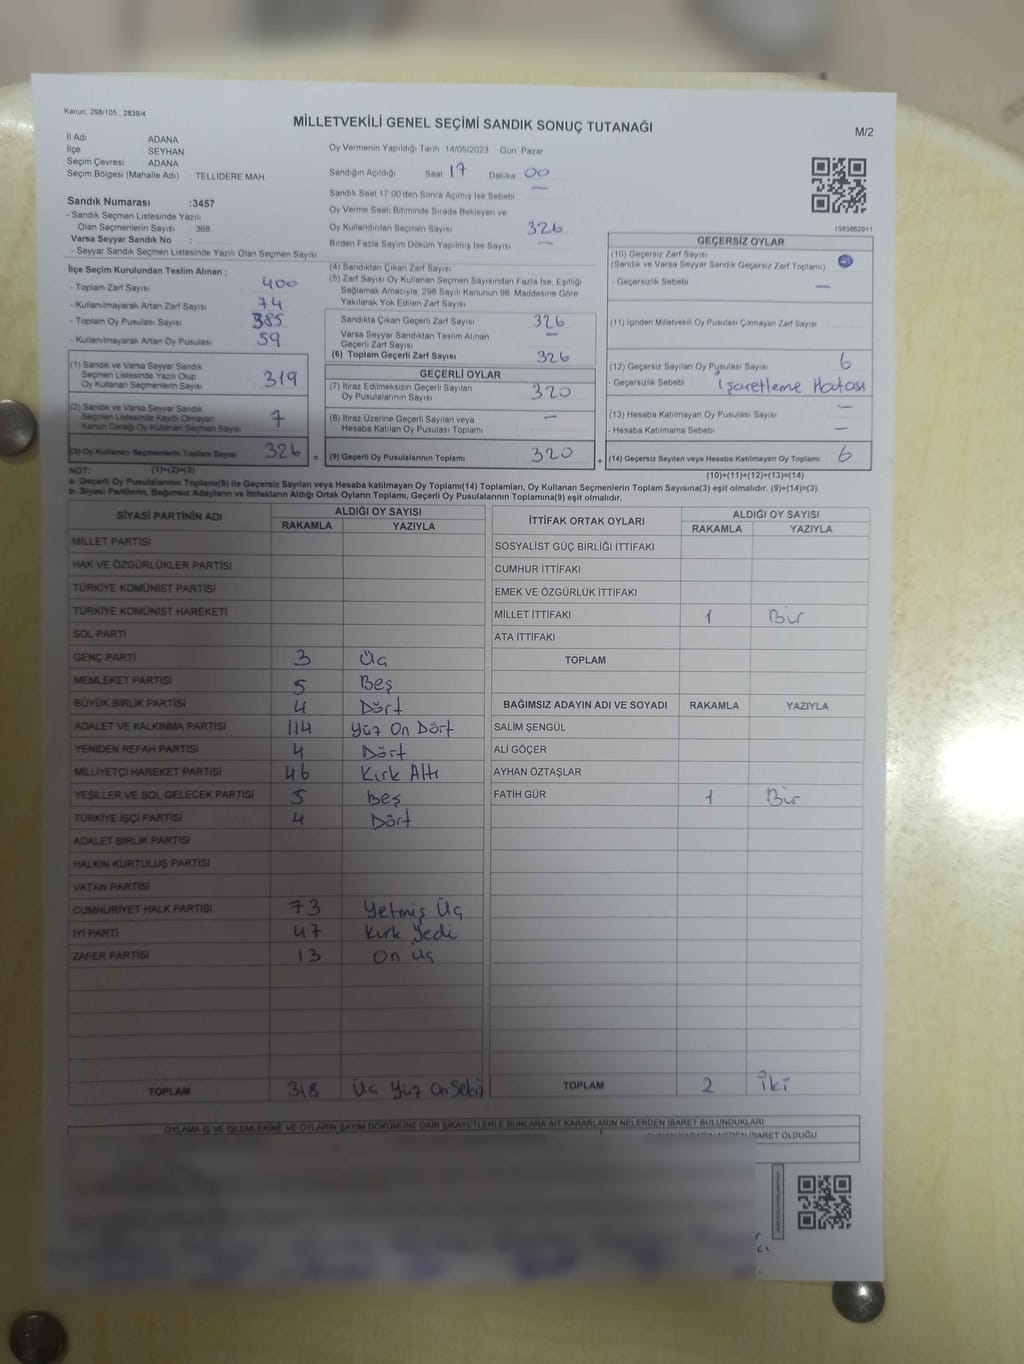 Kanun: 298/105 , 2839/4
MİLLETVEKİLİ GENEL SEÇİMİ SANDIK SONUÇ TUTANAĞI
M/2
İl Adı : ADANA
İlçe : SEYHAN
Seçim Çevresi : ADANA
Seçim Bölgesi (Mahalle Adı) : TELLİDERE MAH
Sandık Numarası :3457
- Sandık Seçmen Listesinde Yazılı
Olan Seçmenlerin Sayısı : 368
Varsa Seyyar Sandık No :
- Seyyar Sandık Seçmen Listesinde Yazılı Olan Seçmen Sayısı
Oy Vermenin Yapıldığı Tarih :14/05/2023 Gün: Pazar
Sandığın Açıldığı Saat 17 Dakika 00
Sandık Saat 17:00'den Sonra Açılmış İse Sebebi —
Oy Verme Saati Bitiminde Sırada Bekleyen ve
Oy Kullandırılan Seçmen Sayısı 326
Birden Fazla Sayım Döküm Yapılmış İse Sayısı —
1083662911
İlçe Seçim Kurulundan Teslim Alınan ;
- Toplam Zarf Sayısı : 400
- Kullanılmayarak Artan Zarf Sayısı : 74
- Toplam Oy Pusulası Sayısı : 385
- Kullanılmayarak Artan Oy Pusulası : 59
(1) Sandık ve Varsa Seyyar Sandık
Seçmen Listesinde Yazılı Olup
Oy Kullanan Seçmenlerin Sayısı 319
(2) Sandık ve Varsa Seyyar Sandık
Seçmen Listesinde Kayıtlı Olmayan
Kanun Gereği Oy Kullanan Seçmen Sayısı 7
(3) Oy Kullanan Seçmenlerin Toplam Sayısı 326
(1)+(2)=(3)
(4) Sandıktan Çıkan Zarf Sayısı
(5) Zarf Sayısı Oy Kullanan Seçmen Sayısından Fazla İse, Eşitliği
Sağlamak Amacıyla, 298 Sayılı Kanunun 98. Maddesine Göre
Yakılarak Yok Edilen Zarf Sayısı
Sandıkta Çıkan Geçerli Zarf Sayısı 326
Varsa Seyyar Sandıktan Teslim Alınan
Geçerli Zarf Sayısı —
(6) Toplam Geçerli Zarf Sayısı 326
GEÇERLİ OYLAR
(7) İtiraz Edilmeksizin Geçerli Sayılan
Oy Pusulalarının Sayısı 320
(8) İtiraz Üzerine Geçerli Sayılan veya
Hesaba Katılan Oy Pusulası Toplamı —
= (9) Geçerli Oy Pusulalarının Toplamı 320
GEÇERSİZ OYLAR
(10) Geçersiz Zarf Sayısı
(Sandık ve Varsa Seyyar Sandık Geçersiz Zarf Toplamı)
- Geçersizlik Sebebi : —
(11) İçinden Milletvekili Oy Pusulası Çıkmayan Zarf Sayısı
(12) Geçersiz Sayılan Oy Pusulası Sayısı 6
- Geçersizlik Sebebi : İşaretleme Hatası
(13) Hesaba Katılmayan Oy Pusulası Sayısı —
- Hesaba Katılmama Sebebi —
+ (14) Geçersiz Sayılan veya Hesaba Katılmayan Oy Toplamı 6
(10)+(11)+(12)+(13)=(14)
NOT:
a- Geçerli Oy Pusulalarının Toplamı(9) ile Geçersiz Sayılan veya Hesaba katılmayan Oy Toplamı(14) Toplamları, Oy Kullanan Seçmenlerin Toplam Sayısına(3) eşit olmalıdır. (9)+(14)=(3)
b- Siyasi Partilerin, Bağımsız Adayların ve İttifakların Aldığı Ortak Oyların Toplamı, Geçerli Oy Pusulalarının Toplamına(9) eşit olmalıdır.
SİYASİ PARTİNİN ADI ALDIĞI OY SAYISI
RAKAMLA YAZIYLA
MİLLET PARTİSİ
HAK VE ÖZGÜRLÜKLER PARTİSİ
TÜRKİYE KOMÜNİST PARTİSİ
TÜRKİYE KOMÜNİST HAREKETİ
SOL PARTİ
GENÇ PARTİ 3 Üç
MEMLEKET PARTİSİ 5 Beş
BÜYÜK BİRLİK PARTİSİ 4 Dört
ADALET VE KALKINMA PARTİSİ 114 Yüz On Dört
YENİDEN REFAH PARTİSİ 4 Dört
MİLLİYETÇİ HAREKET PARTİSİ 46 Kırk Altı
YEŞİLLER VE SOL GELECEK PARTİSİ 5 Beş
TÜRKİYE İŞÇİ PARTİSİ 4 Dört
ADALET BİRLİK PARTİSİ
HALKIN KURTULUŞ PARTİSİ
VATAN PARTİSİ
CUMHURİYET HALK PARTİSİ 73 Yetmiş Üç
İYİ PARTİ 47 Kırk Yedi
ZAFER PARTİSİ 13 On Üç
TOPLAM 318 Üç Yüz On Sekiz
İTTİFAK ORTAK OYLARI ALDIĞI OY SAYISI
RAKAMLA YAZIYLA
SOSYALİST GÜÇ BİRLİĞİ İTTİFAKI
CUMHUR İTTİFAKI
EMEK VE ÖZGÜRLÜK İTTİFAKI
MİLLET İTTİFAKI 1 Bir
ATA İTTİFAKI
TOPLAM
BAĞIMSIZ ADAYIN ADI VE SOYADI RAKAMLA YAZIYLA
SALİM ŞENGÜL
ALİ GÖÇER
AYHAN ÖZTAŞLAR
FATİH GÜR 1 Bir
TOPLAM 2 İki
OYLAMA İŞ VE İŞLEMLERİNE VE OYLARIN SAYIM DÖKÜMÜNE DAİR ŞİKAYETLERLE BUNLARA AİT KARARLARIN NELERDEN İBARET BULUNDUKLARI
OLDUĞU